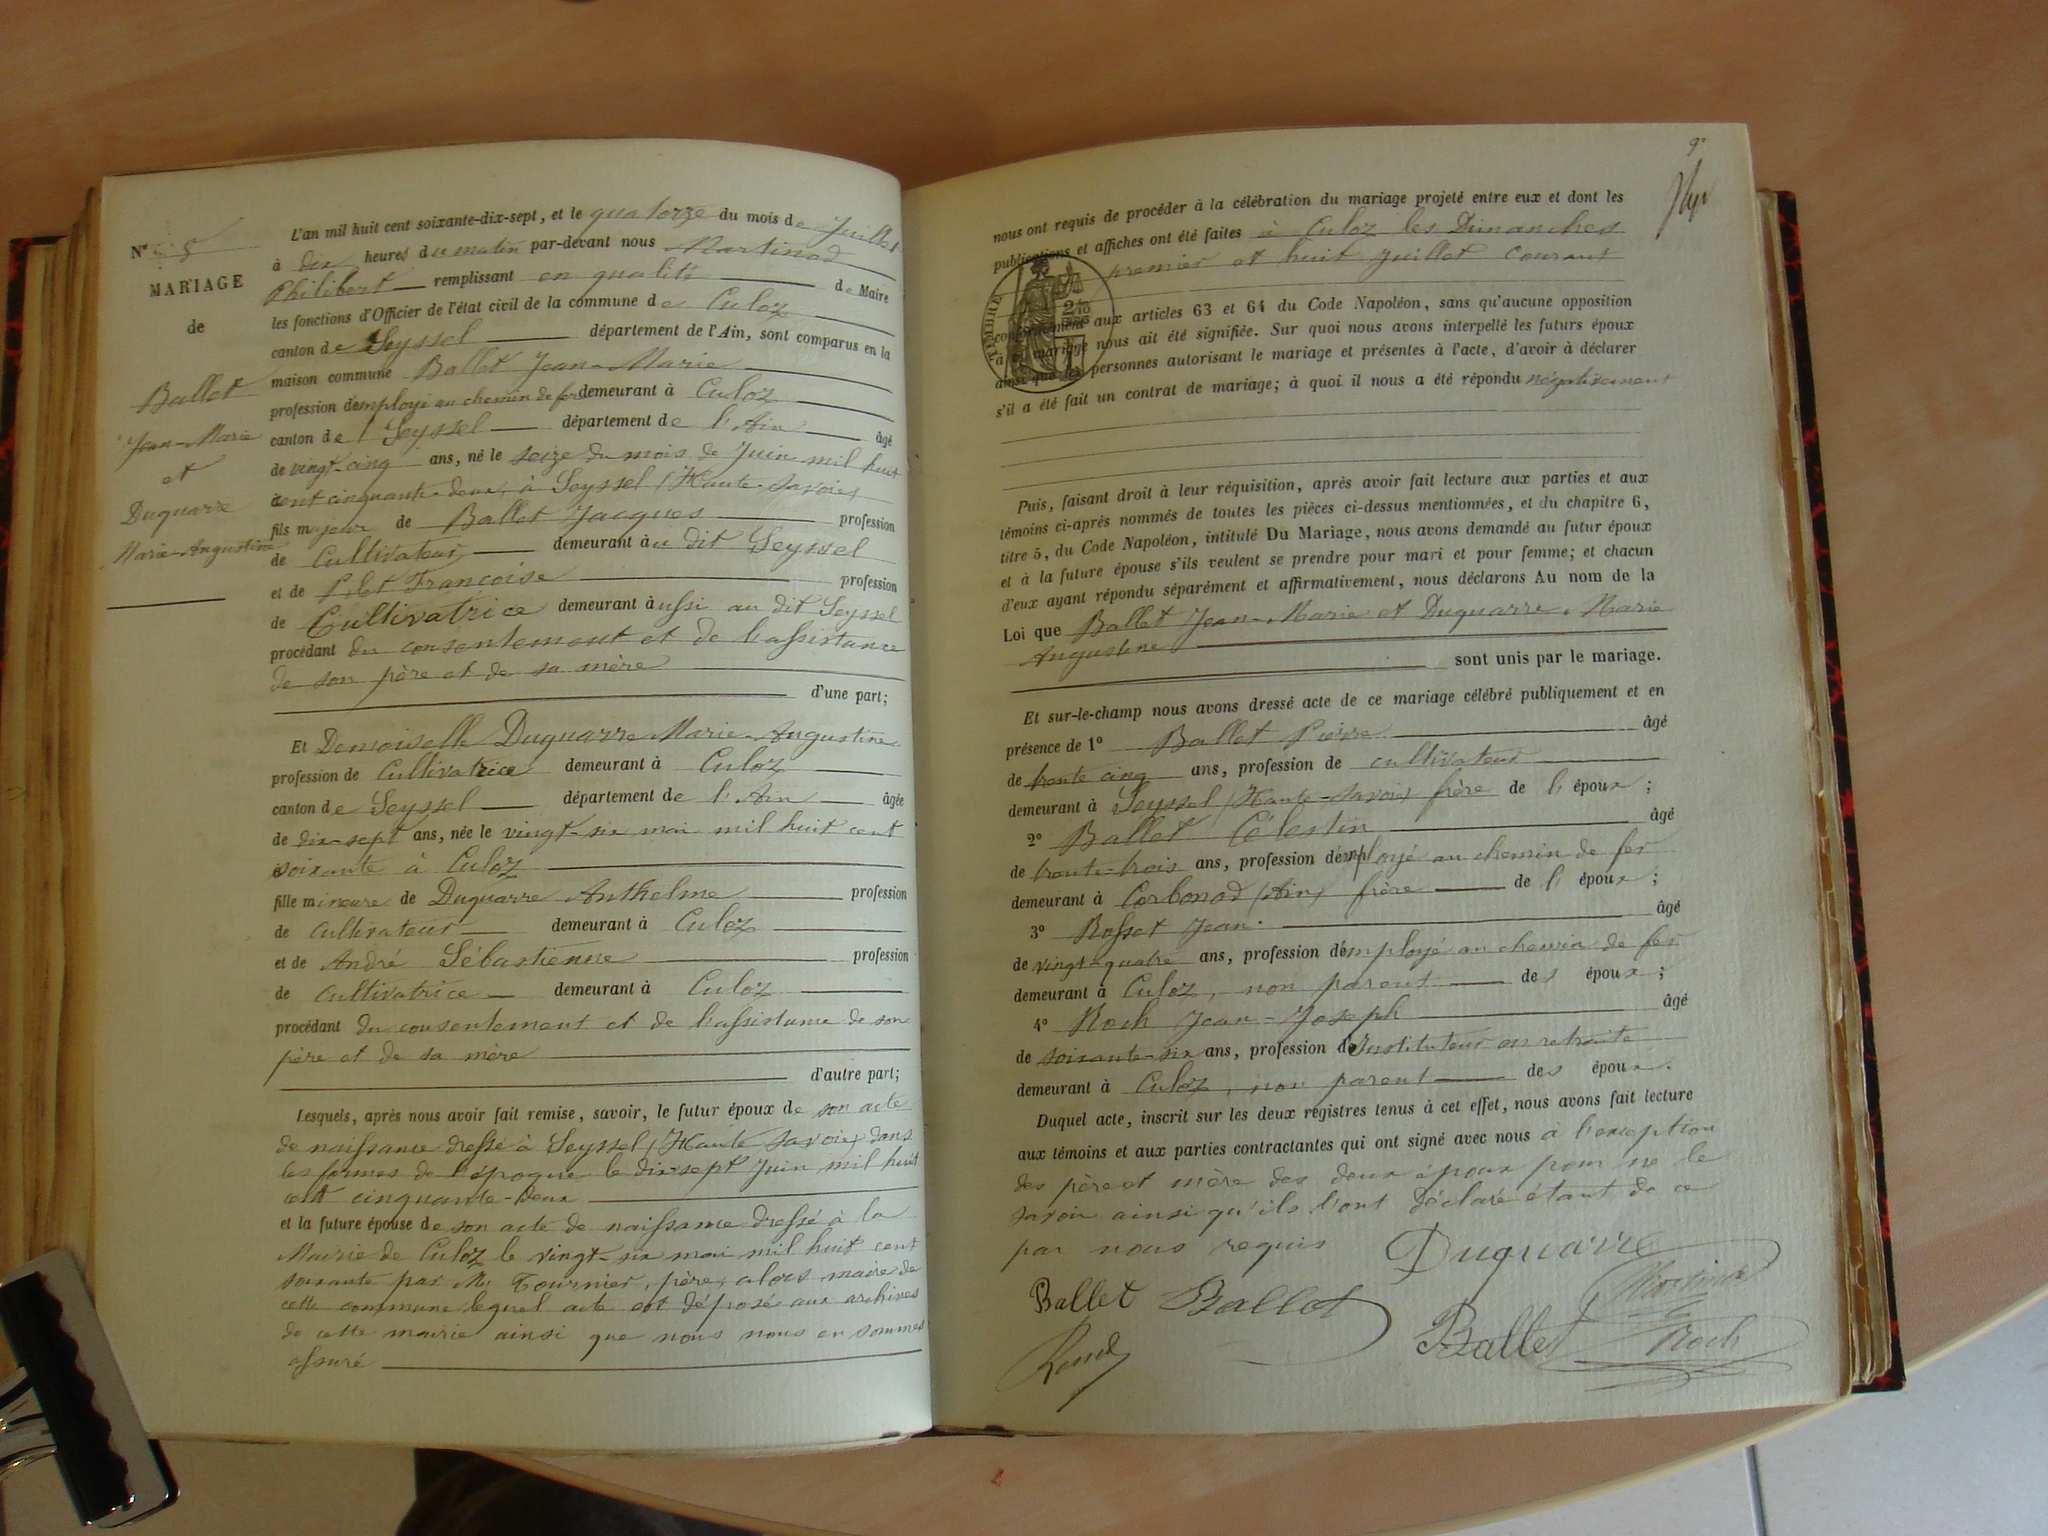 L'an mil huit cent soixante-dix-sept, et le quatorze du mois de Juillet
N° 5
à dix heures du matin par-devant nous Martinod
MARIAGE
Philibert remplissant en qualité de Maire
de
les fonctions d'Officier de l'état civil de la commune de Culoz
canton de Seyssel département de l'Ain, sont comparus en la
maison commune Ballet Jean-Marie
Ballet
profession d'employé au chemin de fer demeurant à Culoz
Jean-Marie
canton de Seyssel département de l'Ain âgé
et
de vingt-cinq ans, né le seize du mois de Juin mil huit
Duquarre
cent cinquante-deux, à Seyssel (Haute-Savoie)
Marie-Augustine
fils majeur de Ballet Jacques profession
de Cultivateur demeurant au dit Seyssel
et de Françoise profession
de Cultivatrice demeurant aussi au dit Seyssel
procédant du consentement et de l'assistance
de son père et de sa mère
d'une part;
Et Demoiselle Duquarre Marie-Augustine
profession de Cultivatrice demeurant à Culoz
canton de Seyssel département de l'Ain âgée
de dix-sept ans, née le vingt-six mai mil huit cent
soixante à Culoz
fille mineure de Duquarre Anthelme profession
de cultivateur demeurant à Culoz
et de André Sébastienne profession
de cultivatrice demeurant à Culoz
procédant du consentement et de l'assistance de son
père et de sa mère
d'autre part;
Lesquels, après nous avoir fait remise, savoir, le futur époux de son acte
de naissance dressé à Seyssel (Haute Savoie) dans
les formes de l'époque le dix-sept Juin mil huit
cent cinquante-deux
et la future épouse de son acte de naissance dressé à la
Mairie de Culoz le vingt-six mai mil huit cent
soixante par Mr Tournier, père, alors maire de
cette commune lequel acte est déposé aux archives
de cette mairie ainsi que nous nous en sommes
assuré
9e
nous ont requis de procéder à la célébration du mariage projeté entre eux et dont les
publications et affiches ont été faites à Culoz les Dimanches
premier et huit Juillet courant
TIMBRE
conformément aux articles 63 et 64 du Code Napoléon, sans qu'aucune opposition
à ce mariage nous ait été signifiée. Sur quoi nous avons interpellé les futurs époux
ainsi que les personnes autorisant le mariage et présentes à l'acte, d'avoir à déclarer
s'il a été fait un contrat de mariage; à quoi il nous a été répondu négativement
Puis, faisant droit à leur réquisition, après avoir fait lecture aux parties et aux
témoins ci-après nommés de toutes les pièces ci-dessus mentionnées, et du chapitre 6,
titre 5, du Code Napoléon, intitulé Du Mariage, nous avons demandé au futur époux
et à la future épouse s'ils veulent se prendre pour mari et pour femme; et chacun
d'eux ayant répondu séparément et affirmativement, nous déclarons Au nom de la
Loi que Ballet Jean-Marie et Duquarre Marie
Augustine
sont unis par le mariage.
Et sur-le-champ nous avons dressé acte de ce mariage célébré publiquement et en
présence de 1° Ballet Pierre âgé
de trente cinq ans, profession de cultivateur
demeurant à Seyssel (Haute-Savoie) frère de l'époux;
2° Ballet Célestin âgé
de trente-trois ans, profession d'employé au chemin de fer
demeurant à Corbonod (Ain) frère de l'époux;
3° Rosset Jean âgé
de vingt-quatre ans, profession d'employé au chemin de fer
demeurant à Culoz, non parent des époux;
4° Roch Jean-Joseph âgé
de soixante-six ans, profession d'Instituteur en retraite
demeurant à Culoz, non parent des époux.
Duquel acte, inscrit sur les deux registres tenus à cet effet, nous avons fait lecture
aux témoins et aux parties contractantes qui ont signé avec nous à l'exception
des père et mère des deux époux pour ne le
savoir ainsi qu'ils l'ont déclaré étant de ce
par nous requis
Duquarre
Ballet Ballet Martinod
Ballet Roch